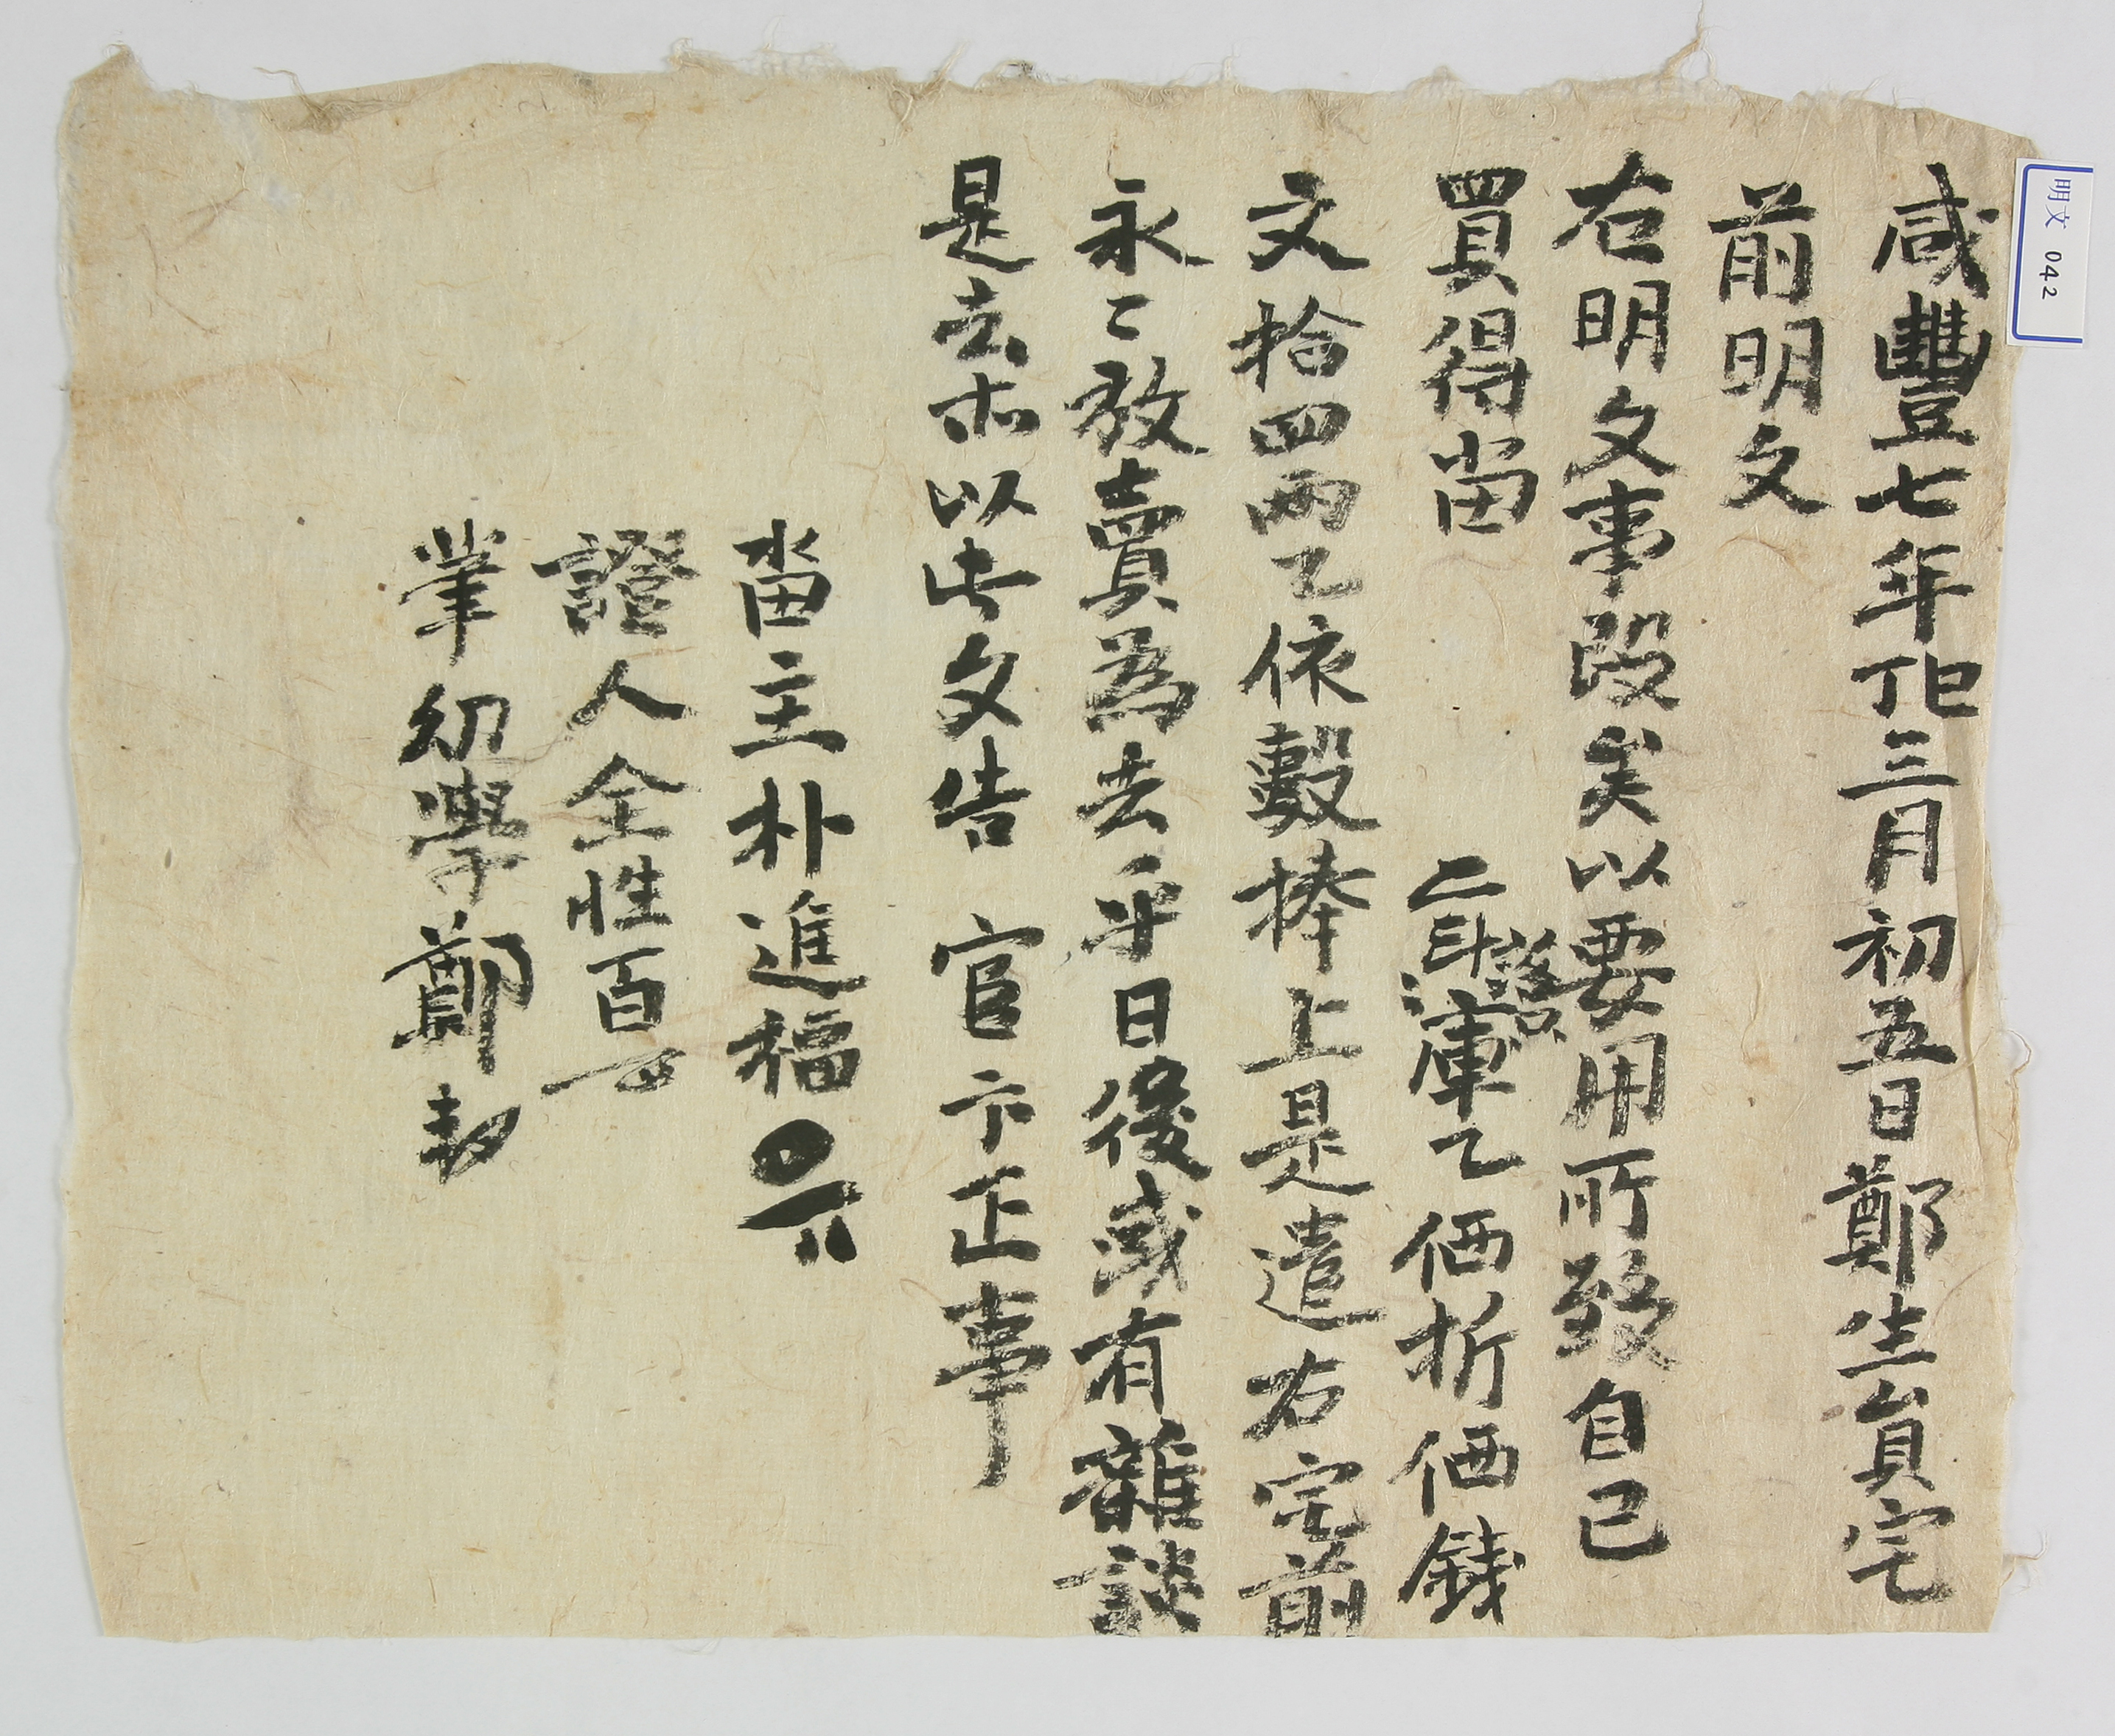 咸豐七年丁巳三月初五日鄭生員宅
前明文
右明文事段矣以要用所致自己
買得畓 二斗落只庫乙価折価錢
文拾四兩乙依數捧上是遣右宅前
永々放賣爲去乎日後或有雜談
是去等以此文告 官卞正事
畓主朴進福
證人全性百
筆幼學鄭
明文 042